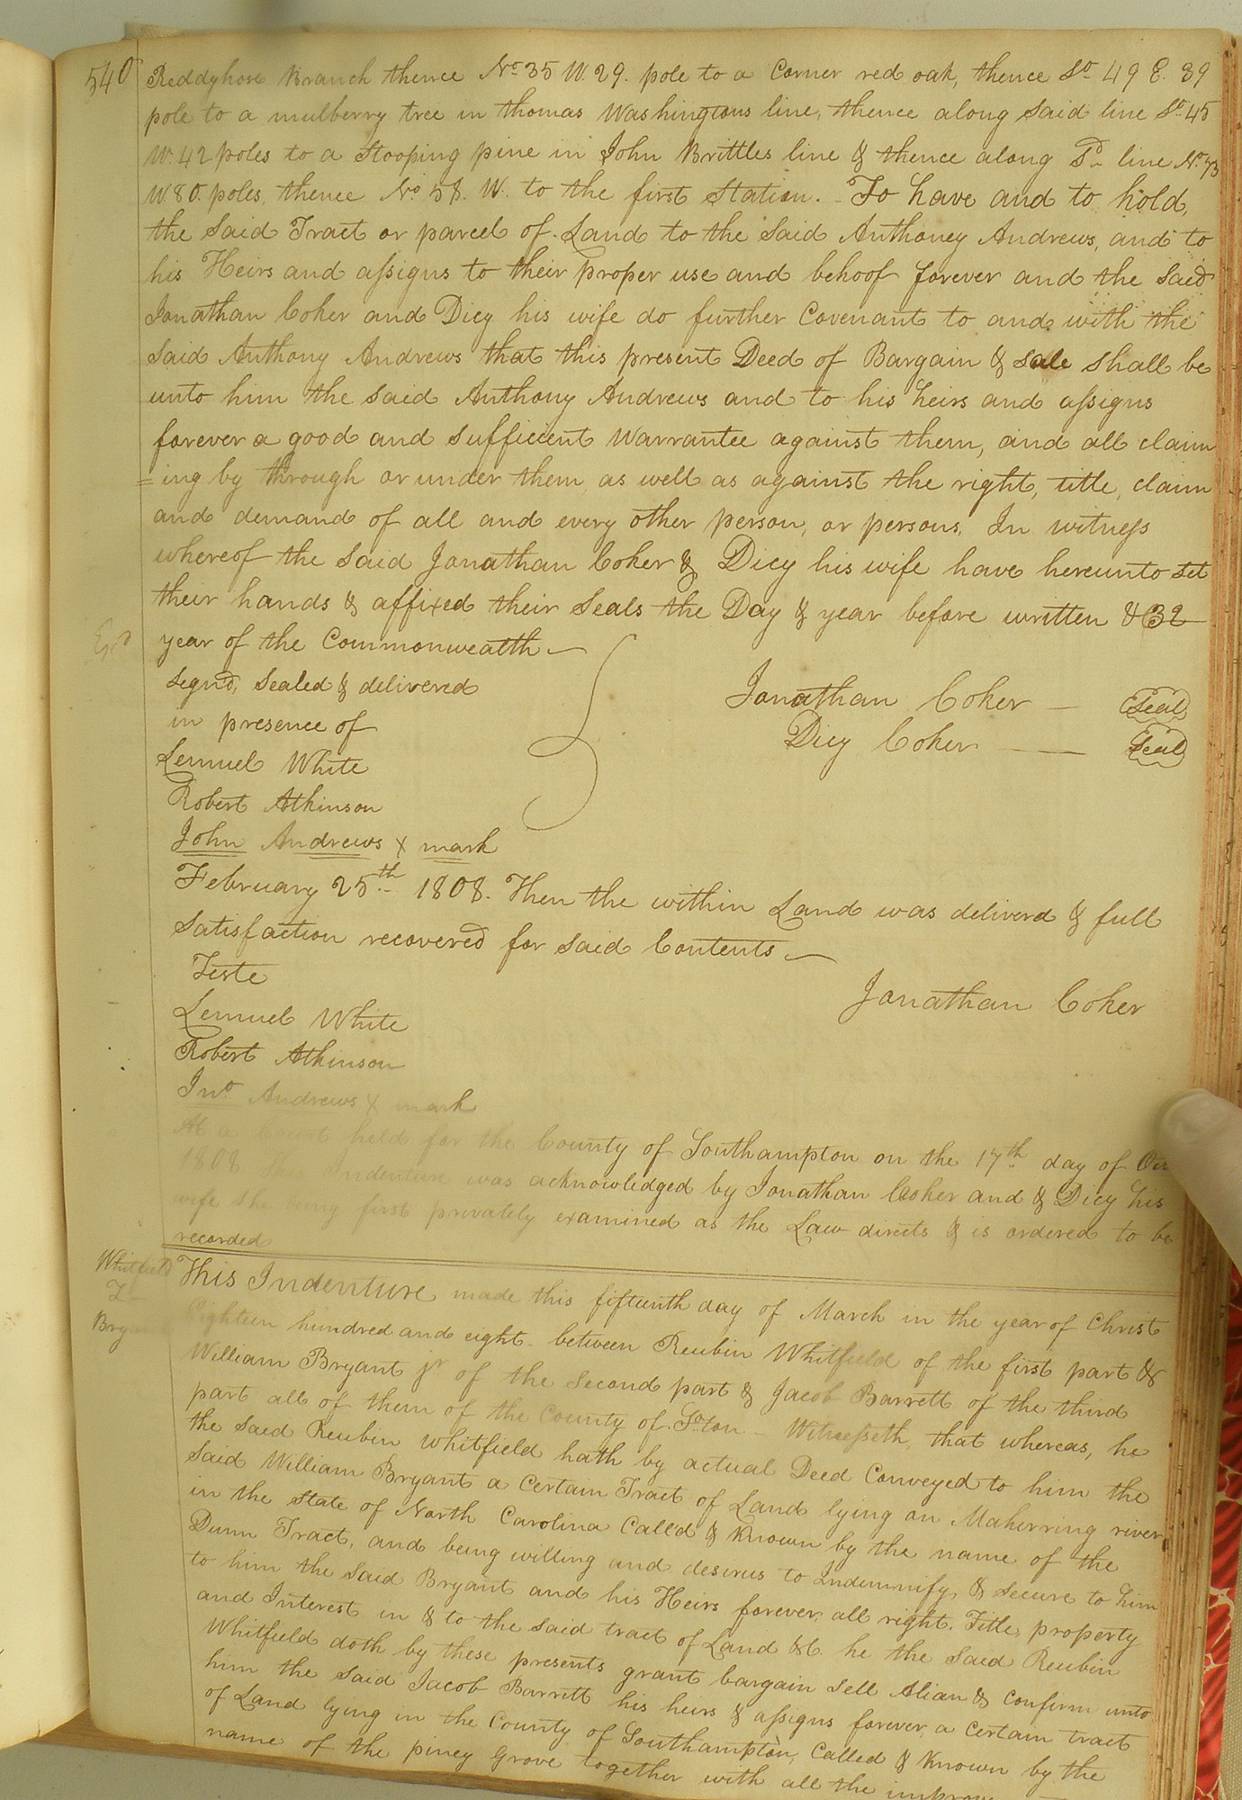 540
Reddyhose Branch thence No. 35 W. 29. pole to a Corner red oak, thence So. 49 E. 39
pole to a mulberry tree in thomas Washingtons line, thence along Said line So. 45
W. 42 poles to a Stooping pine in John Brittles line & thence along Sd. line No. 73
W. 80. poles, thence No. 58. W. to the first Station. To have and to hold,
the Said Tract or parcel of Land to the Said Anthoney Andrews, and to
his Heirs and assigns to their proper use and behoof forever and the Said
Jonathan Coker and Dicy his wife do further Covenant to and with the
Said Anthony Andrews that this present Deed of Bargain & Sale Shall be
unto him the Said Anthony Andrews and to his heirs and assigns
forever a good and Sufficient Warrantee against them, and all claim
=ing by through or under them as well as against the right, title, claim
and demand of all and every other person, or persons. In witness
whereof the Said Jonathan Coker & Dicy his wife have hereunto Set
their hands & affixed their Seals the Day & year before written & 32
year of the Commonwealth
Segnd, Sealed & delivered
in presence of
Jonathan Coker Seal
Dicy Coker Seal
Lemuel White
Robert Atkinson
John Andrews x mark
February 25th 1808. Then the within Land was deliverd & full
Satisfaction recovered for Said Contents
Teste
Jonathan Coker
Lemuel White
Robert Atkinson
Jno. Andrews x mark
At a Court held for the County of Southampton on the 17th day of
1808 Indenture was acknowledged by Jonathan Coker and & Dicy his
wife She being first privately examined as the Law directs & is ordered to be
recorded
Whitfield
To
This Indenture made this fifteenth day of March in the year of Christ
Eighteen hundred and eight between Reubin Whitfield of the first part &
William Bryant jr of the Second part & Jacob Barrett of the third
part all of them of the County of So.ton Witnesseth, that whereas, he
the Said Reubin Whitfield hath by actual Deed Conveyed to him the
Said William Bryant a Certain Tract of Land lying on Maherring river
in the State of North Carolina Calld & Known by the name of the
Dunn Tract, and being willing and desirus to Indemnify, & Secure to him
to him the Said Bryant and his Heirs forever, all right, Title, property
and Interest in & to the Said tract of Land &C. he the Said Reubin
Whitfield doth by these presents grant bargain Sell Alian & Confirm unto
him the Said Jacob Barritt his heirs & assigns forever a Certain tract
of Land lying in the County of Southampton, Called & Known by the
name of the piney Grove together with all the